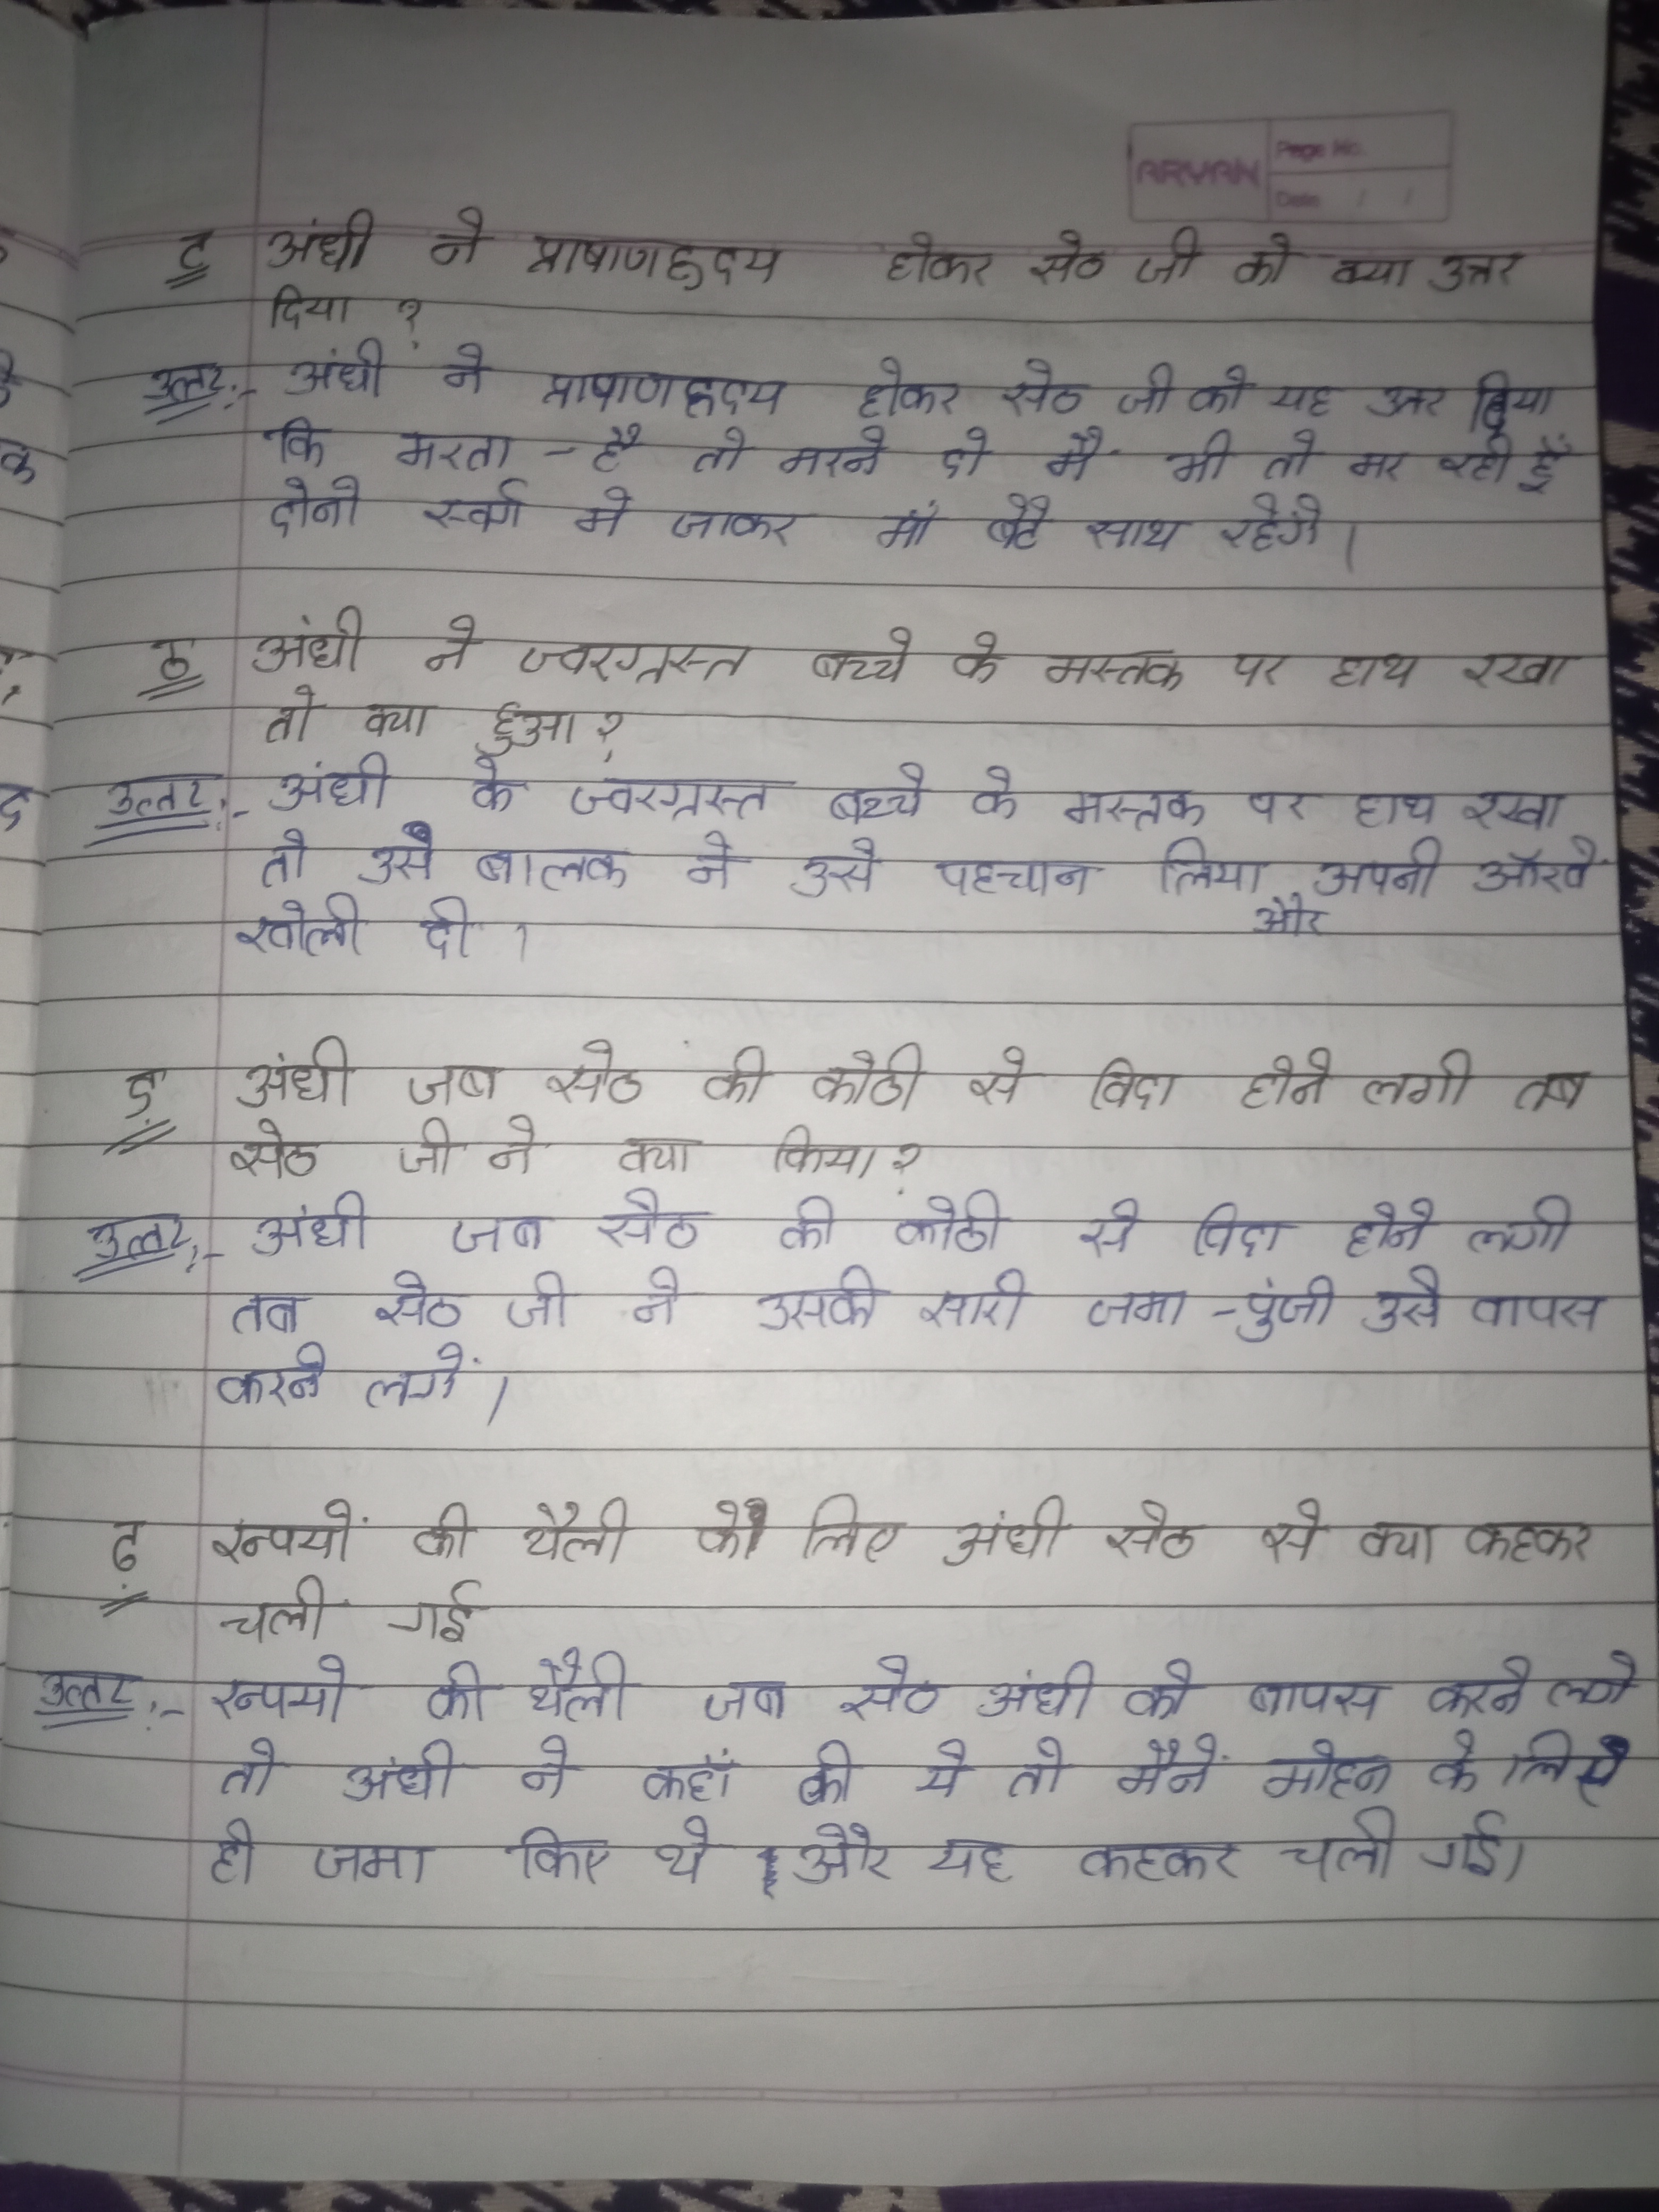 ARMAN Page No.
Date / /
ट अंधी ने प्राषाणहृदय होकर सेठ जी को क्या उत्तर
दिया ?
उत्तर:- अंधी ने प्राषाणहृदय होकर सेठ जी को यह उत्तर दिया
कि मरता - है तो मरने दो मैं भी तो मर रही हूँ
दोनो स्वर्ग मे जाकर माँ बेटे साथ रहेगे।
ठ अंधी ने ज्वरग्रस्त बच्चे के मस्तक पर हाथ रखा
तो क्या हुआ ?
उत्तर:- अंधी के ज्वरग्रस्त बच्चे के मस्तक पर हाथ रखा
तो उसे बालक ने उसे पहचान लिया अपनी आँखें
और
खोली दी।
ड अंधी जब सेठ की कोठी से विदा होने लगी तब
सेठ जी ने क्या किया ?
उत्तर:- अंधी जब सेठ की कोठी से विदा होने लगी
तब सेठ जी ने उसकी सारी जमा - पुंजी उसे वापस
करने लगें।
ढ रूपयों की थैली को लिए अंधी सेठ से क्या कहकर
चली गई
उत्तर:- रूपयो की थैली जब सेठ अंधी को बापस करने लगे
तो अंधी ने कहाँ की ये तो मैनें मोहन के लिए
ही जमा किए थे और यह कहकर चली गई।